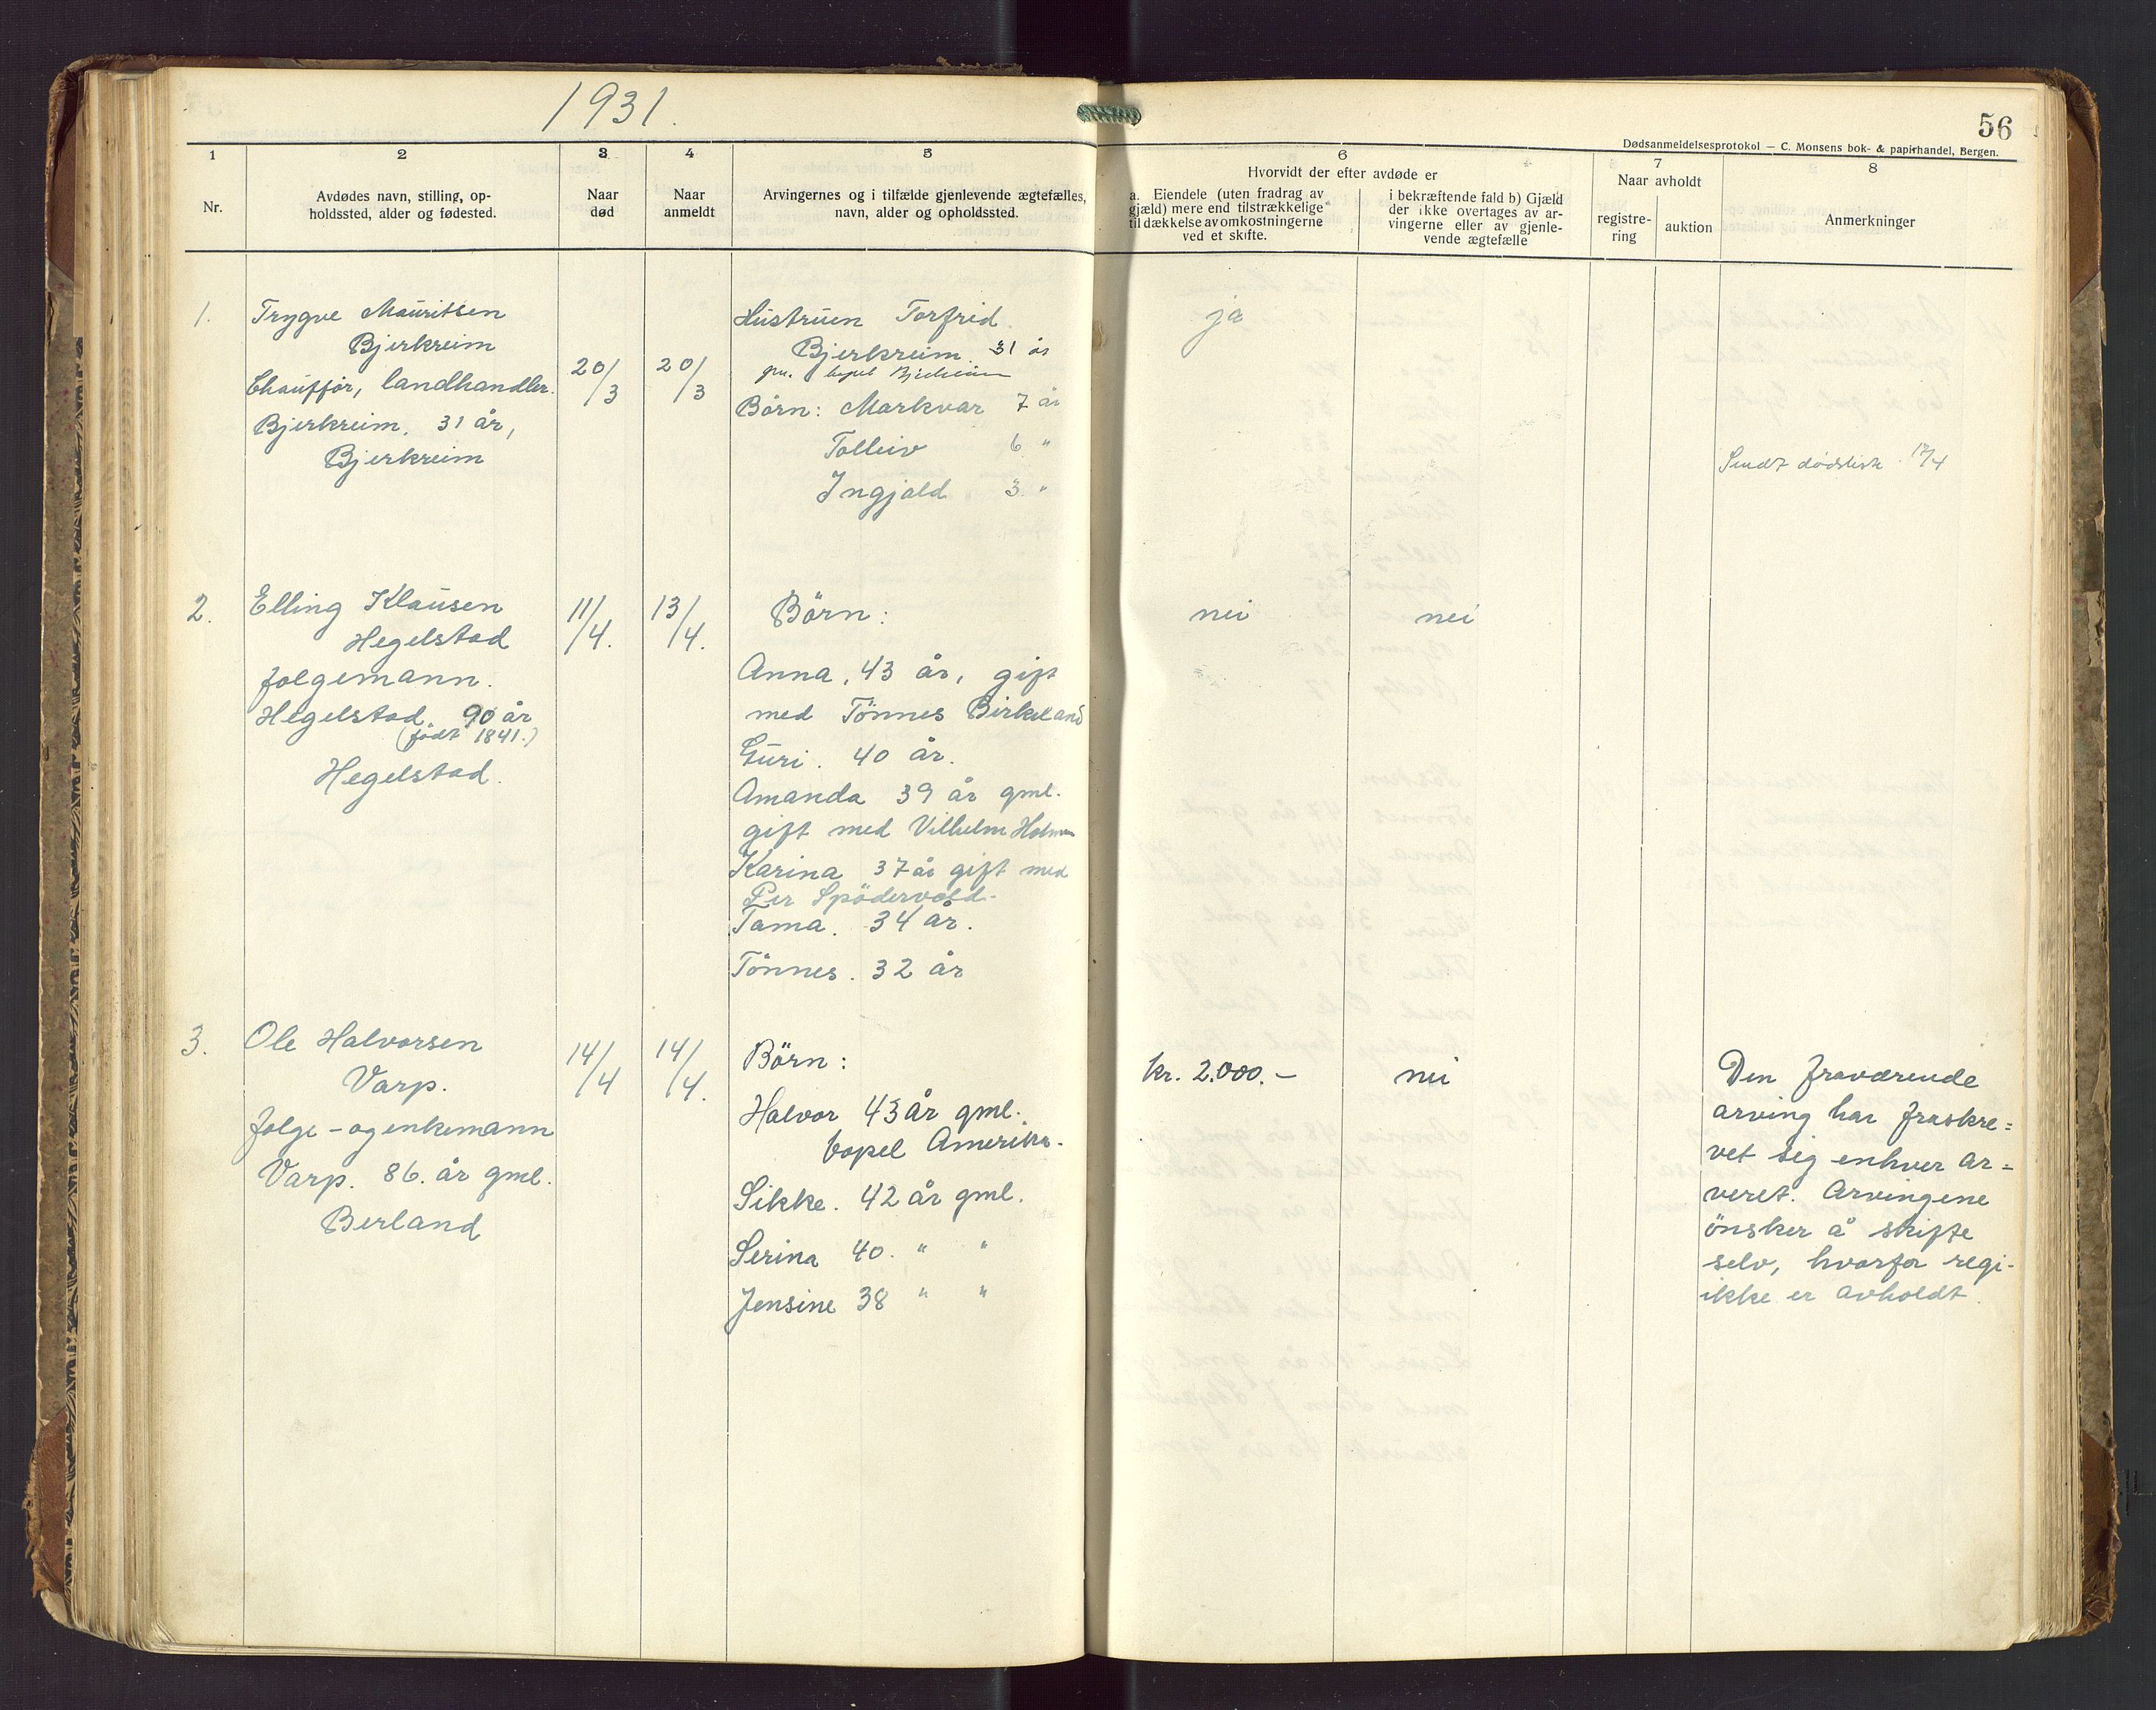 1931.
56
Dødsanmeldelsesprotokol — C. Monsens bok- & papirhandel, Bergen.
1
2
3
4
5
6
7
8
Nr.
Avdødes navn, stilling, op-
holdssted, alder og fødested.
Naar
død
Naar
anmeldt
Arvingernes og i tilfælde gjenlevende ægtefælles,
navn, alder og opholdssted.
Hvorvidt der efter avdøde er
a. Eiendele (uten fradrag av
gjæld) mere end tilstrækkelige
til dækkelse av omkostningerne
ved et skifte.
i bekræftende fald b) Gjæld
der ikke overtages av ar-
vingerne eller av gjenle-
vende ægtefælle
Naar avholdt
registre-
ring
auktion
Anmerkninger
1.
Trygve Mauritsen
Bjerkreim
Chauffør, landhandler.
Bjerkreim. 31 år,
Bjerkreim
20/3
20/3
Hustruen Torfrid
Bjerkreim. 31 år
bopel Bjerkreim
Börn: Markvar 7 år
Tolleiv 6 "
Ingjald 3 "
ja
Sendt dødsliste 17/4
2.
Elling Klausen
Hegelstad
folgemann.
Hegelstad. 90 år
(født 1841.)
Hegelstad.
11/4.
13/4.
Börn:
Anna, 43 år, gift
med Tönnes Birkeland
Guri. 40 år.
Amanda 39 år gml.
gift med Vilhelm
Karina 37 år gift med
Per Spödervold.
Tama. 34 år.
Tönnes. 32 år
nei
nei
3.
Ole Halvorsen
Varp.
folge- og enkemann
Varp. 86. år gml.
Berland
14/4
14/4.
Börn:
Halvor 43 år gml.
bopel Amerika.
Sikke. 42 år gml.
Serina 40. " "
Jensine 38 " "
kr. 2.000.-
nei
Den fraværende
arving har fraskre=
vet sig enhver ar=
veret. Arvingene
önsker å skifte
selv, hvorfor regi-
ikke er avholdt.